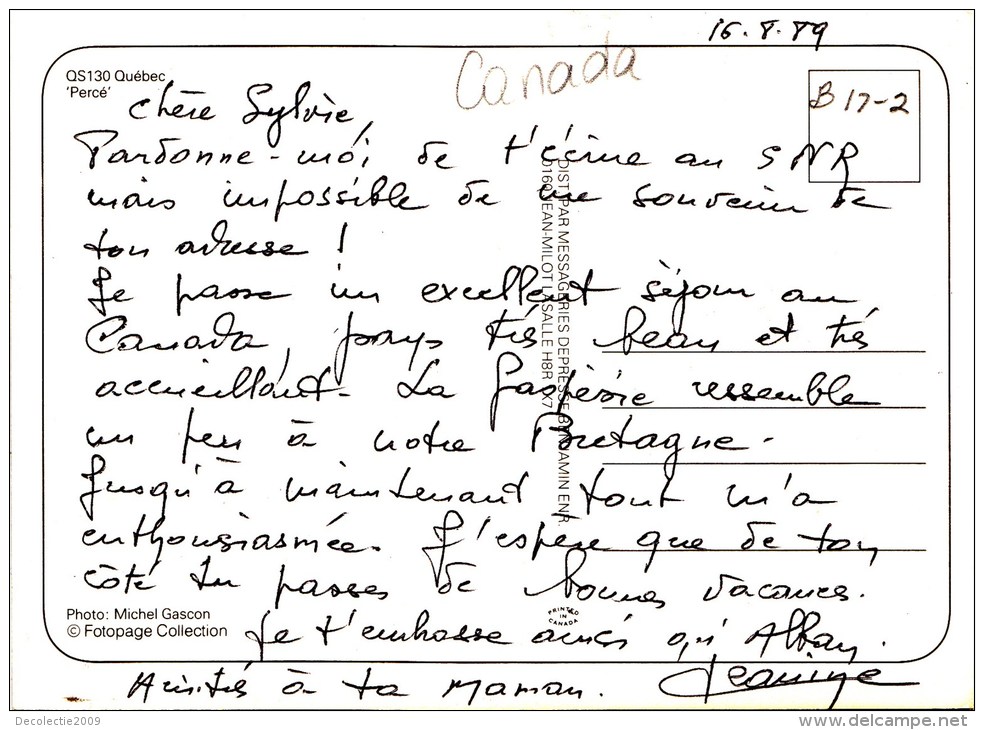 16.8.89
Canada
QS130 Québec
'Percé'
B 17-2
Chère Sylvie,
Pardonne-moi de t'écrire au SNR
mais impossible de me souvenir de
ton adresse !
Je passe un excellent séjour au
Canada, pays très beau et très
accueillant. La Gaspésie ressemble
un peu à notre Bretagne.
Jusqu'à maintenant tout m'a
enthousiasmée. J'espère que de ton
côté tu passes de bonnes vacances.
Je t'embrasse ainsi qu' Alban.
Amitiés à ta Maman. Jeanine
DIST. PAR MESSAGERIES DE PRESSE BENJAMIN ENR.
JEAN-MILOT LASALLE H8R
PRINTED
IN
CANADA
Photo: Michel Gascon
© Fotopage Collection
Decolectie2009
www.delcampe.net